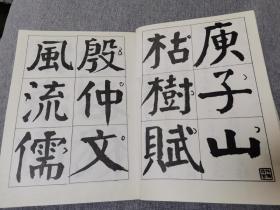 庾子山
枯樹賦
殷仲文
風流儒